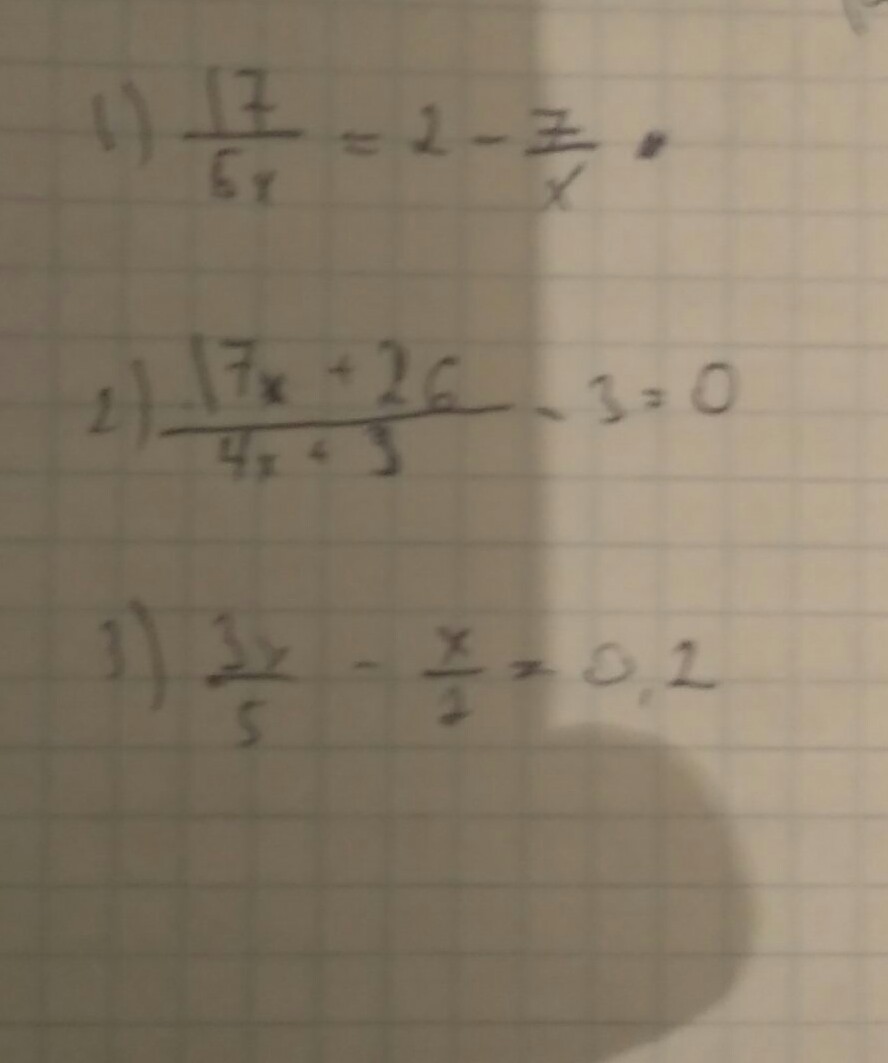 1) 17/6x = 2 - 7/x
2) (17x + 26)/(4x + 3) - 3 = 0
3) 3x/5 - x/2 = 0,2